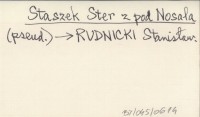 Staszek Ster z pod Nosala
(pseud.) → RUDNICKI Stanisław.